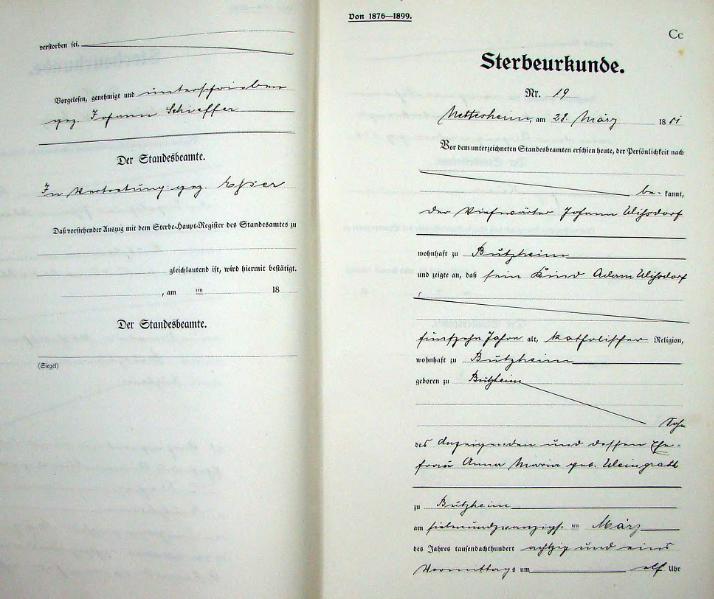 verstorben sei.
Vorgelesen, genehmigt und unterschrieben
gez. Johann Schieffer
Der Standesbeamte.
In Vertretung gez. Esser
Daß vorstehender Auszug mit dem Sterbe-Haupt-Register des Standesamtes zu
gleichlautend ist, wird hiermit bestätigt.
, am ten 18
Der Standesbeamte.
(Siegel)
Von 1876—1899.
Cc
Sterbeurkunde.
Nr. 19
Nettersheim, am 28. März 1881
Vor dem unterzeichneten Standesbeamten erschien heute, der Persönlichkeit nach
be- kannt,
der Johann
wohnhaft zu Butzheim
und zeigte an, daß sein Kind Adam
fünfzehn Jahre alt, katholischer Religion,
wohnhaft zu Butzheim
geboren zu Butzheim
Sohn
des Anzeigenden und dessen Ehe-
frau Anna Maria geb.
zu Butzheim
am siebenundzwanzigst ten März
des Jahres tausendachthundert achtzig und eins
Vormittags um elf Uhr